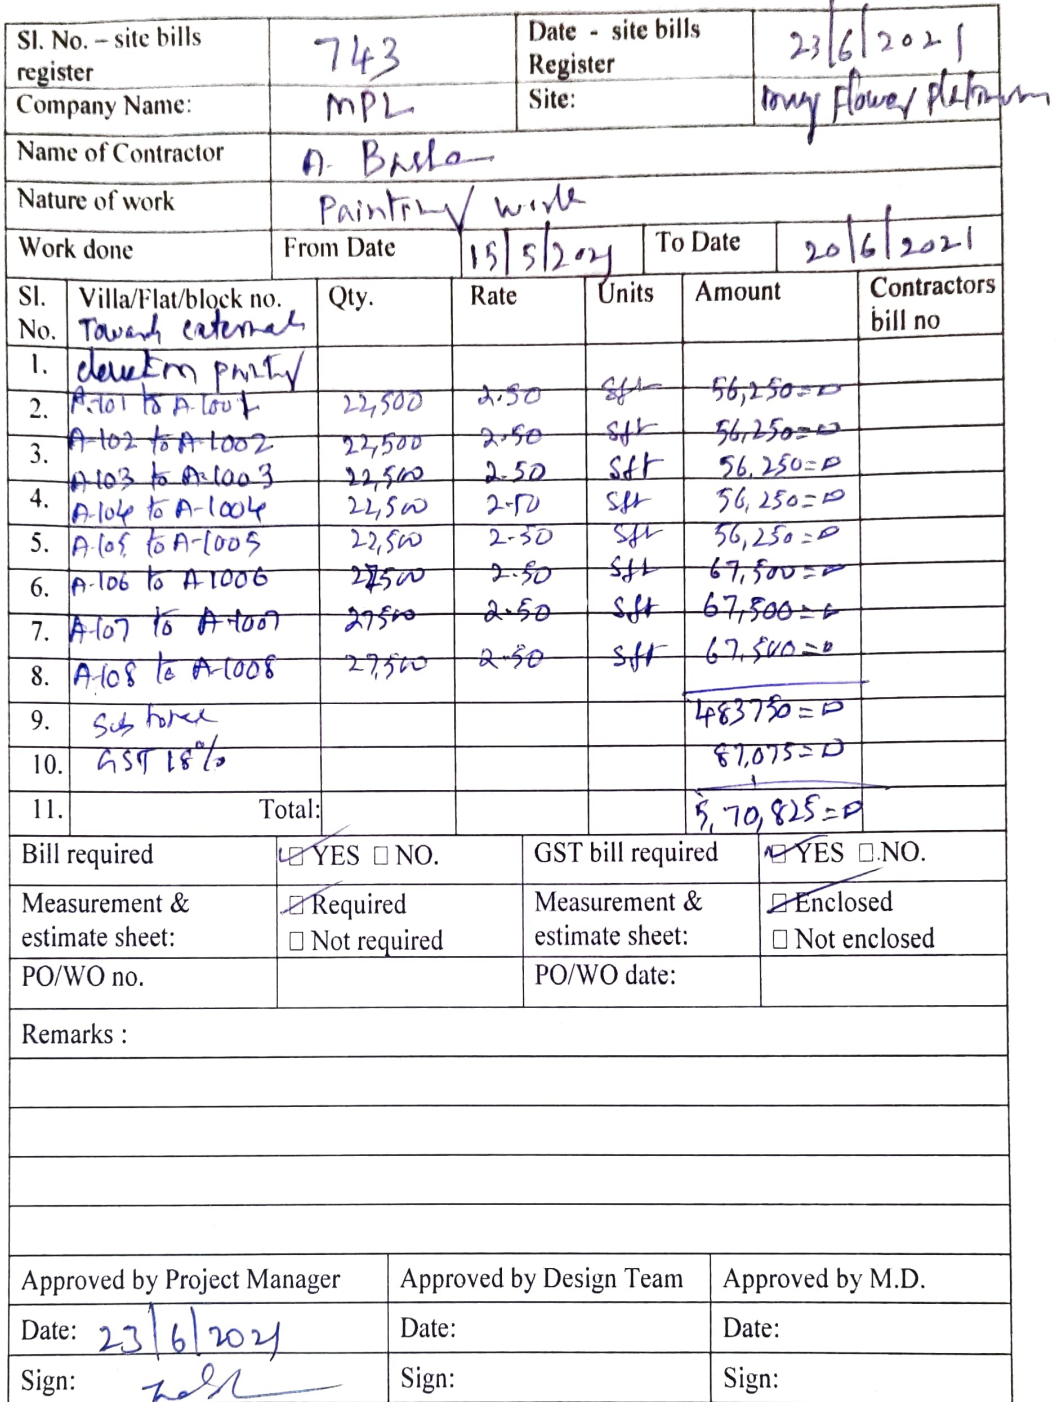 Sl. No. – site bills register 743 Date - site bills Register 23/6/2021
Company Name: MPL Site: Flower Platinum
Name of Contractor A. Basha
Nature of work Painting work
Work done From Date 15/5/2021 To Date 20/6/2021
Sl. No. Villa/Flat/block no. Qty. Rate Units Amount Contractors bill no
Towards external
1. elevation painting
2. A-101 to A-1001 22,500 2.50 Sft 56,250=0
3. A-102 to A-1002 22,500 2.50 Sft 56,250=0
A-103 to A-1003 22,500 2.50 Sft 56,250=0
4. A-104 to A-1004 22,500 2.50 Sft 56,250=0
5. A-105 to A-1005 22,500 2.50 Sft 56,250=0
6. A-106 to A-1006 27500 2.50 Sft 67,500=0
7. A-107 to A-1007 27500 2.50 Sft 67,500=0
8. A-108 to A-1008 27,500 2.50 Sft 67,500=0
9. Sub total 483750=0
10. GST 18% 87,075=0
11. Total: 5,70,825=0
Bill required ☑ YES ☐ NO. GST bill required ☑ YES ☐ NO.
Measurement & estimate sheet: ☑ Required ☐ Not required Measurement & estimate sheet: ☑ Enclosed ☐ Not enclosed
PO/WO no. PO/WO date:
Remarks :
Approved by Project Manager Approved by Design Team Approved by M.D.
Date: 23/6/2021 Date: Date:
Sign: Sign: Sign: